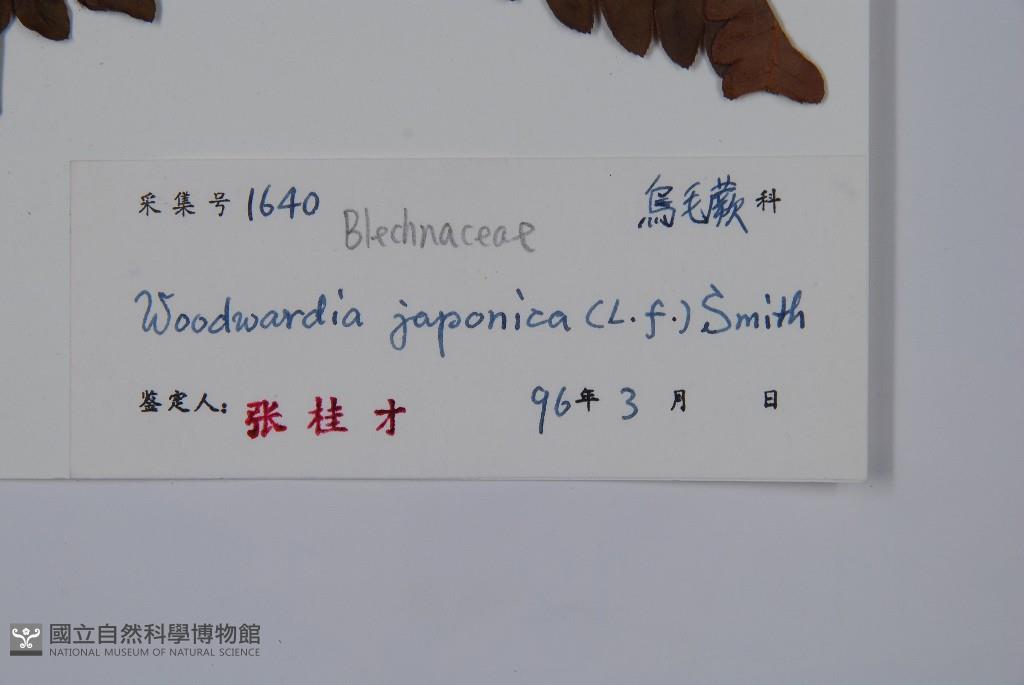 采集号 1640 烏毛蕨科
Blechnaceae
Woodwardia japonica (L.f.) Smith
鉴定人: 张桂才 96年 3月 日
國立自然科學博物館
NATIONAL MUSEUM OF NATURAL SCIENCE